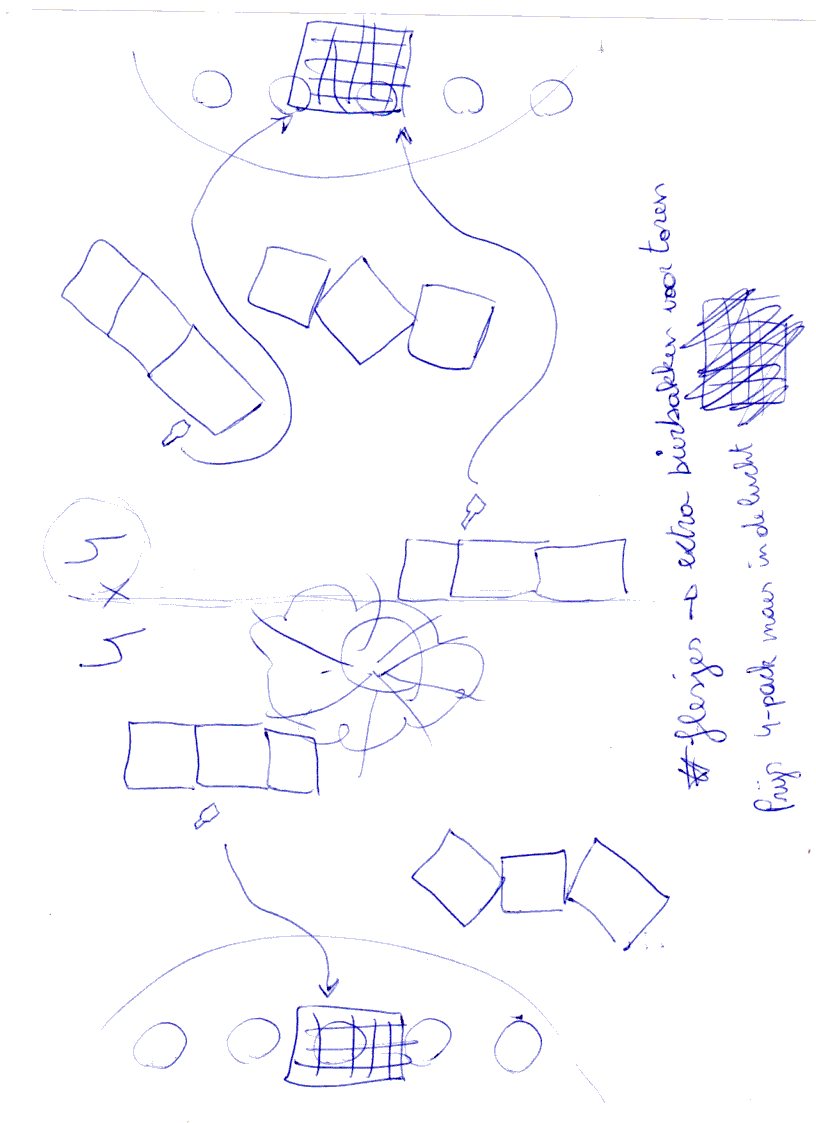 4
x
4
# flesjes → extra bierbakken voor toren
Prijs 4-pack maes in de lucht